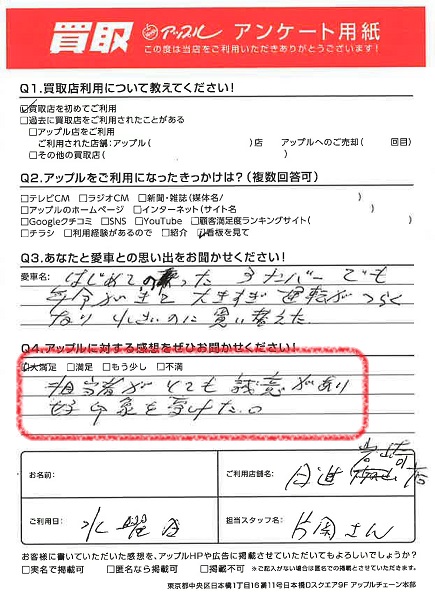 買取 アップル アンケート用紙
この度は当店をご利用いただきありがとうございます!
Q1.買取店利用について教えてください!
☑買取店を初めてご利用
□過去に買取店をご利用されたことがある
□アップル店をご利用
ご利用された店舗:アップル( )店 アップルへのご売却( 回目)
□その他の買取店( )
Q2.アップルをご利用になったきっかけは?(複数回答可)
□テレビCM □ラジオCM □新聞・雑誌(媒体名/ )
□アップルのホームページ □インターネット(サイト名 )
□Googleクチコミ □SNS □YouTube □顧客満足度ランキングサイト( )
□チラシ □利用経験があるので □紹介 ☑看板を見て
Q3.あなたと愛車との思い出をお聞かせください!
愛車名: はじめての乗った 3ナンバーでも
年令がきて 大きすぎ 運転がつらく
なり 小さいのに買い替えた
Q4.アップルに対する感想をぜひお聞かせください!
☑大満足 □満足 □もう少し □不満
担当者がとても誠意があり
好印象を受けた。
お名前:
ご利用店舗名: 日進
ご利用日: 水曜日
担当スタッフ名: 片岡さん
お客様に書いていただいた感想を、アップルHPや広告に掲載させていただいてもよろしいでしょうか?
□実名で掲載可 □匿名なら掲載可 □掲載不可 ※ご記入がない場合は匿名での掲載とさせていただきます。
東京都中央区日本橋1丁目16番11号日本橋Dスクエア9F アップルチェーン本部